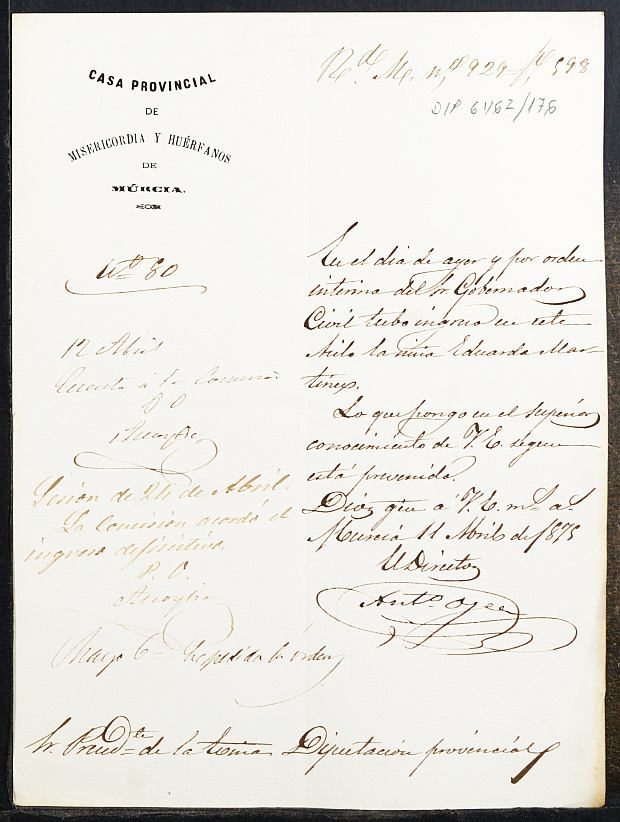 CASA PROVINCIAL
DE
MISERICORDIA Y HUÉRFANOS
DE
MÚRCIA.
Nº 80
Rdo M. nº 929 fº 598
DIP 6462/176
En el dia de ayer y por orden
interina del Sr. Gobernador
Civil tubo ingreso en este
Asilo la niña Eduarda Mar-
tinez.
Lo que pongo en el superior
conocimiento de V. E. segun
está prevenido.
Dios gue á V. E. ms. as.
Murcia 11 Abril de 1875
El Director
Antº
12 Abril
Cuenta á la Comision
P O
Sesion de 24 de Abril.
La Comision acordó el
ingreso definitivo.
P. O.
Mayo 6 = Expedida la orden
Sr. Presidte de la Excma Diputación provincial